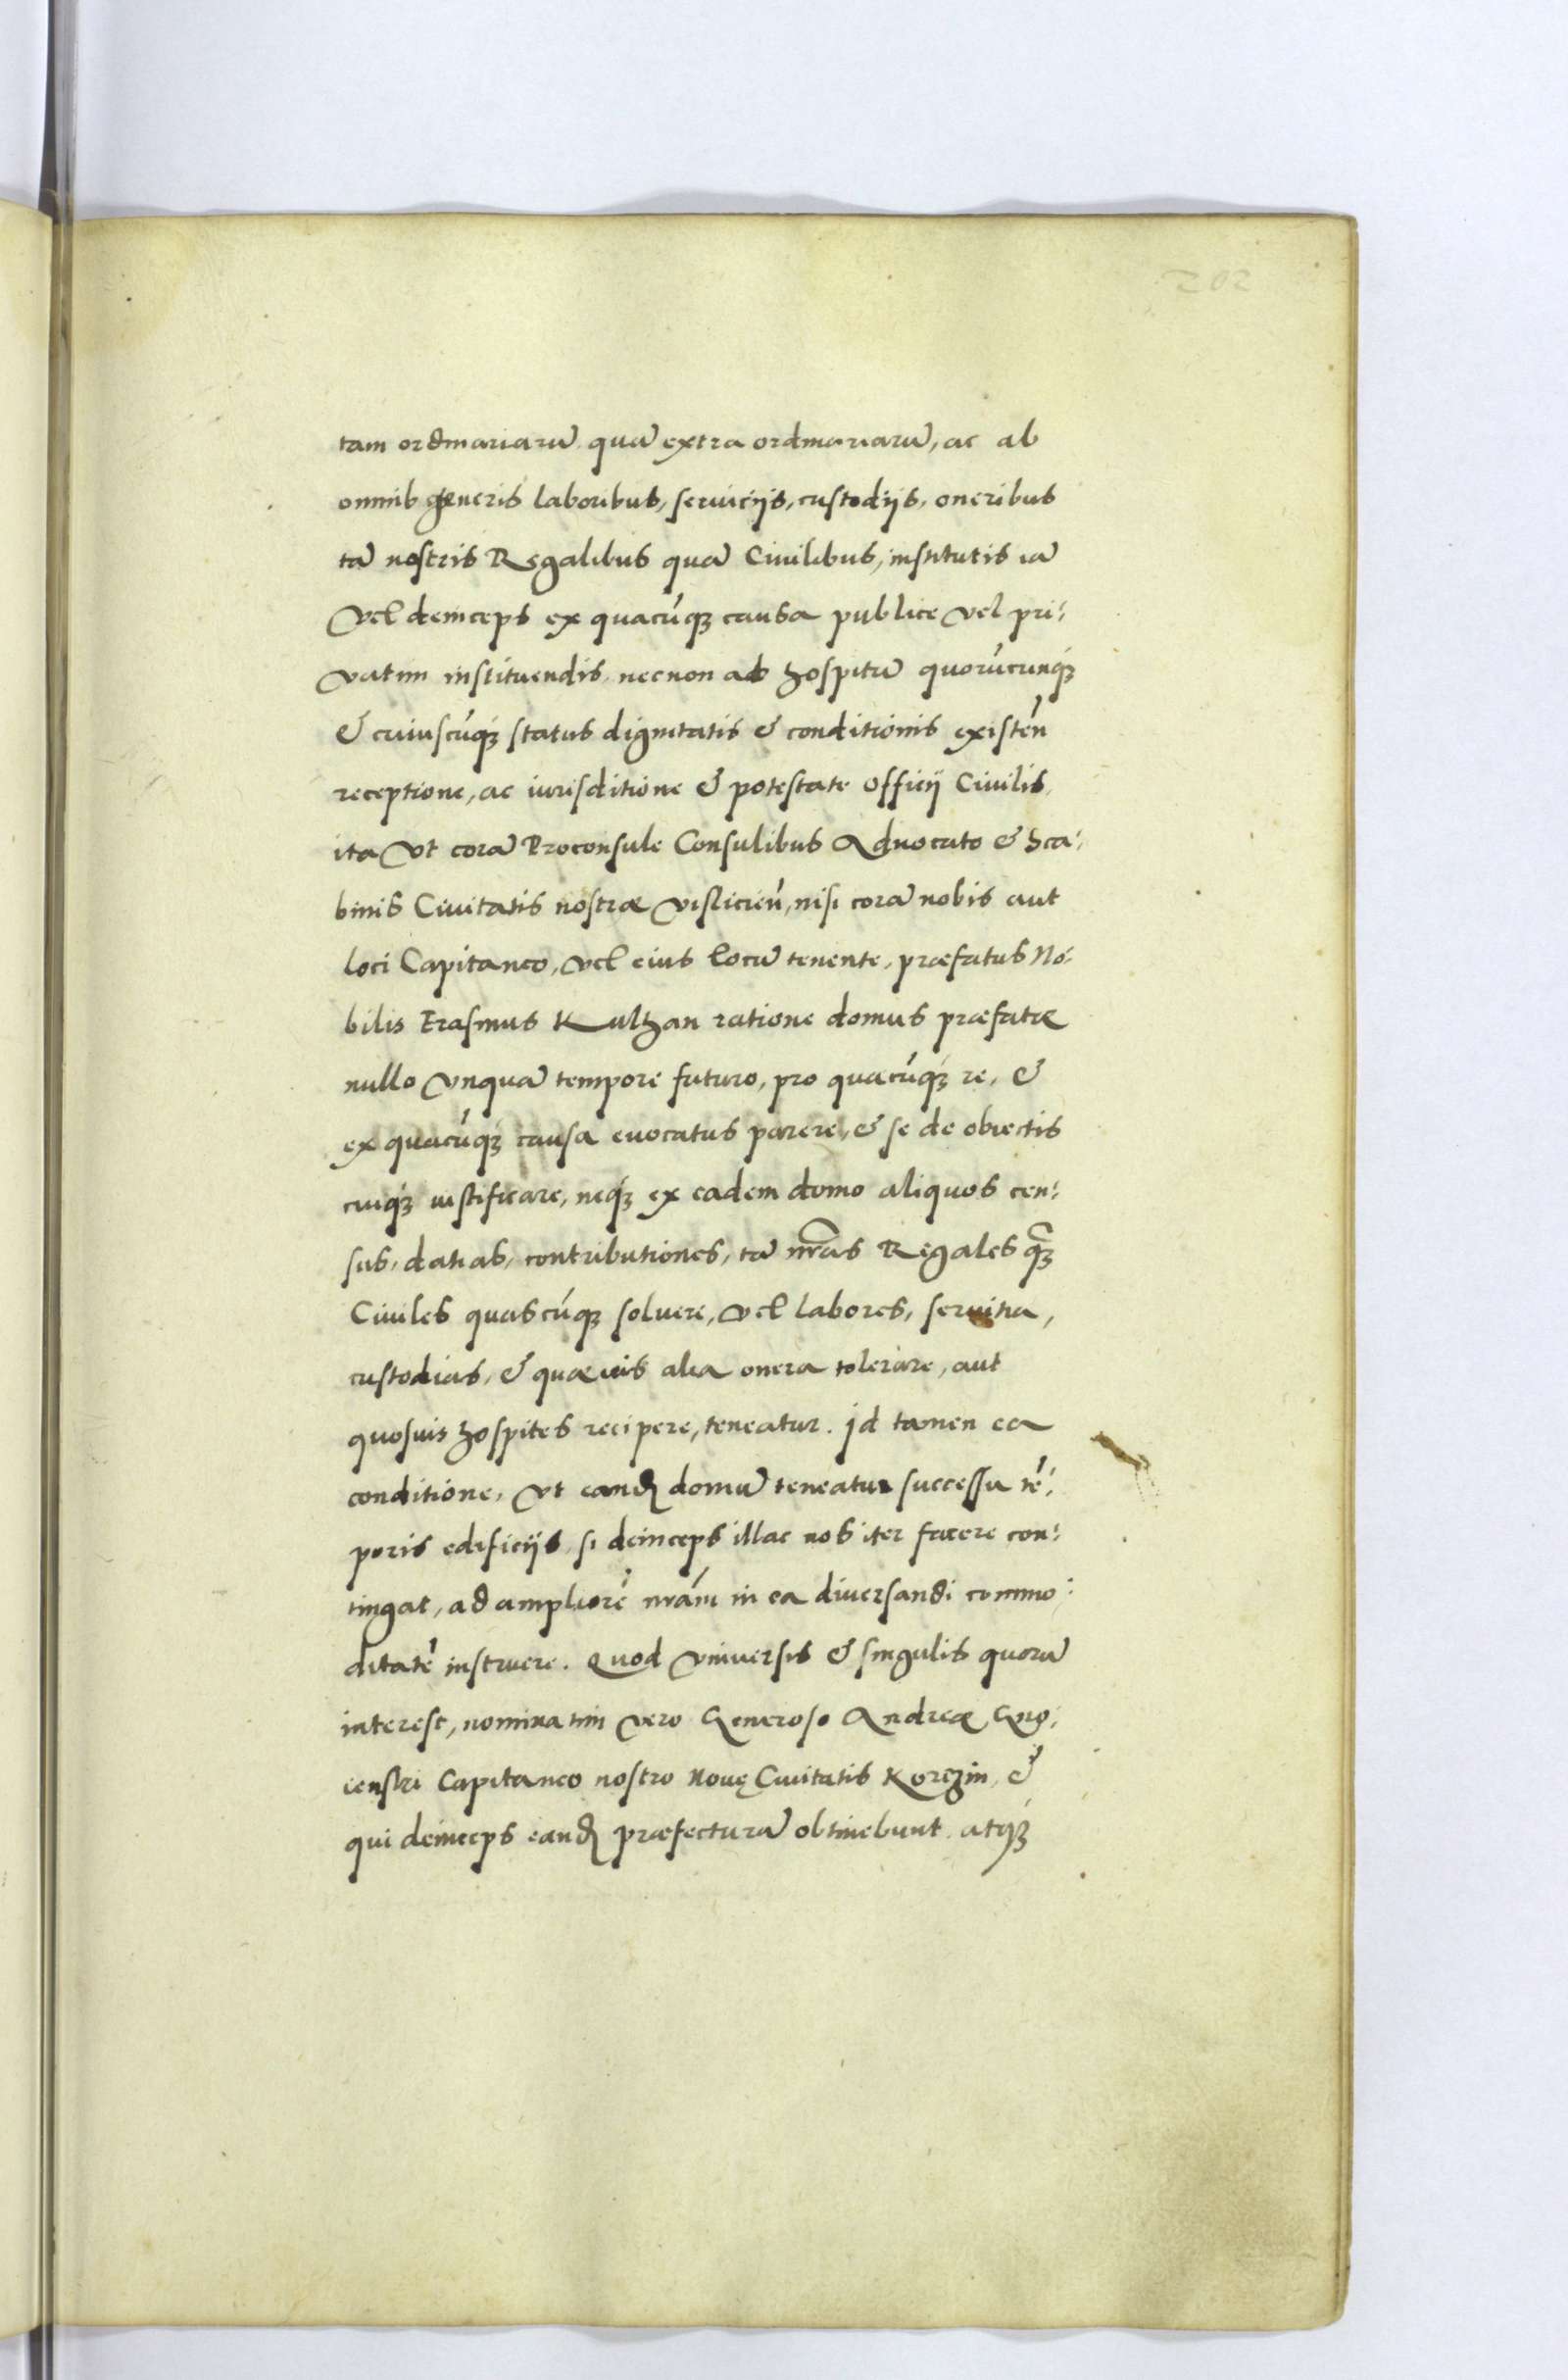 202
tam ordinariarū quā extra ordinariarū, ac ab
omnib generis laboribus, seruicijs, custodijs, oneribus
tā nostris Regalibus quā Ciuilibus, institutis iā
vel deinceps ex quacūq; causa publice vel pri:
vatim instituendis, necnon ab hospitū quorūcunq;
& cuiuscūq; status dignitatis & conditionis existeñ
receptione, ac iurisditione & potestate officij Ciuilis,
ita vt corā Proconsule Consulibus Aduocato & Sca:
binis Ciuitatis nostræ visliciēn, nisi corā nobis aut
loci Capitaneo, vel eius locū tenente, præfatus No:
bilis Erasmus Kulhan ratione domus præfatæ
nullo vnquā tempore futuro, pro quacūq; re, &
ex quacūq; causa euocatus parere, & se de obiectis
cuiq; iustificare, neq; ex eadem domo aliquos cen:
sus, datias, contributiones, tā nr̄as Regales q̄;
Ciuiles quascūq; soluere, vel labores, seruitia,
custodias, & quæuis alia onera tolerare, aut
quosuis hospites recipere, teneatur. Id tamen ea
conditione, vt eand domū teneatur successu tē:
poris edificijs, si deinceps illac nos iter facere con:
tingat, ad ampliorē nrām in ea diuersandi commo:
ditatē instruere. Quod vniuersis & singulis quorū
interest, nominatim vero Generoso Andreæ Gno:
ienski Capitaneo nostro Nouę Ciuitatis Korczin, &
qui deinceps eand præfecturā obtinebunt, atq;